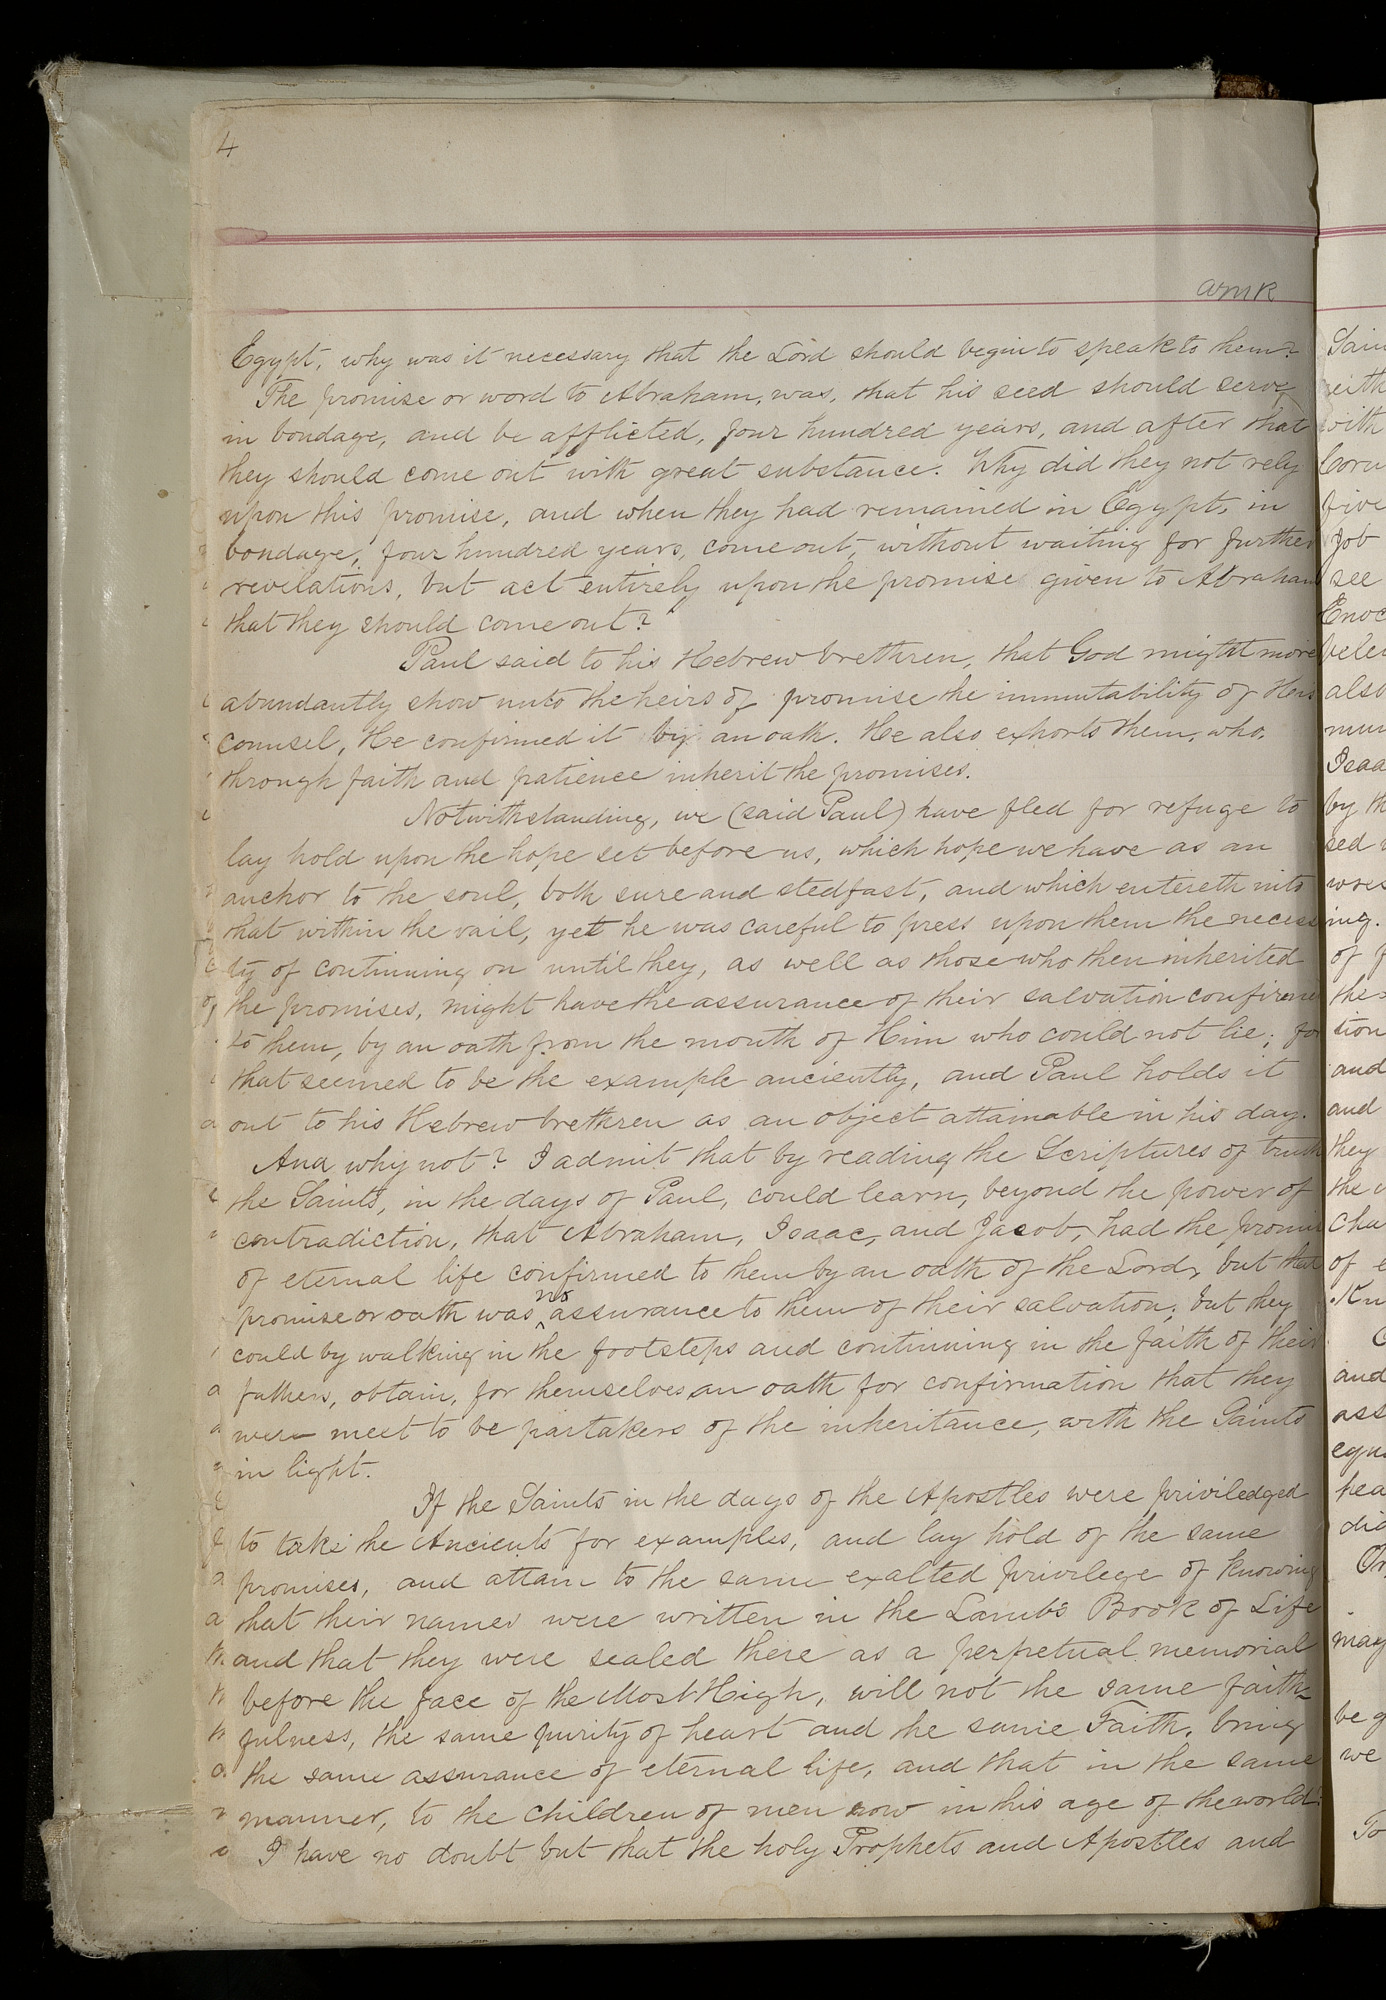 4
amR
Egypt, why was it necessary that the Lord should begin to speak to them?
The promise or word to Abraham, was, that his seed should serve
in bondage, and be afflicted, four hundred years, and after that
they should come out with great substance. Why did they not rely
upon this promise, and when they had remained in Egypt, in
bondage, four hundred years, come out, without waiting for further
revelations, but act entirely upon the promise given to Abraham
that they should come out?
Paul said to his Hebrew brethren, that God might more
abundantly show unto the heirs of promise the immutability of His
counsel, He confirmed it by an oath. He also exhorts them, who,
through faith and patience inherit the promises.
Notwithstanding, we (said Paul) have fled for refuge to
lay hold upon the hope set before us, which hope we have as an
anchor to the soul, both sure and stedfast, and which entereth into
that within the vail, yet he was careful to press upon them the necessi
ty of continuing on until they, as well as those who then inherited
the promises, might have the assurance of their salvation confirmed
to them, by an oath from the mouth of Him who could not lie; for
that seemed to be the example anciently, and Paul holds it
out to his Hebrew brethren as an object attainable in his day.
And why not? I admit that by reading the Scriptures of truth
the Saints, in the days of Paul, could learn, beyond the power of
contradiction, that Abraham, Isaac, and Jacob, had the promis
of eternal life confirmed to them by an oath of the Lord, but that
promise or oath was no assurance to them of their salvation; but they
could by walking in the footsteps and continuing in the faith of their
fathers, obtain, for themselves an oath for confirmation that they
were meet to be partakers of the inheritance, with the Saints
in light.
If the Saints in the days of the Apostles were priviledged
to take the Ancients for examples, and lay hold of the same
promises, and attain to the same exalted privilege of knowing
that their names were written in the Lamb's Book of Life
and that they were sealed there as a perpetual memorial
before the face of the Most High, will not the same faith=
fulness, the same purity of heart and the same Faith, bring
the same assurance of eternal life, and that in the same
manner, to the children of men now in this age of the world?
I have no doubt but that the holy Prophets and Apostles and